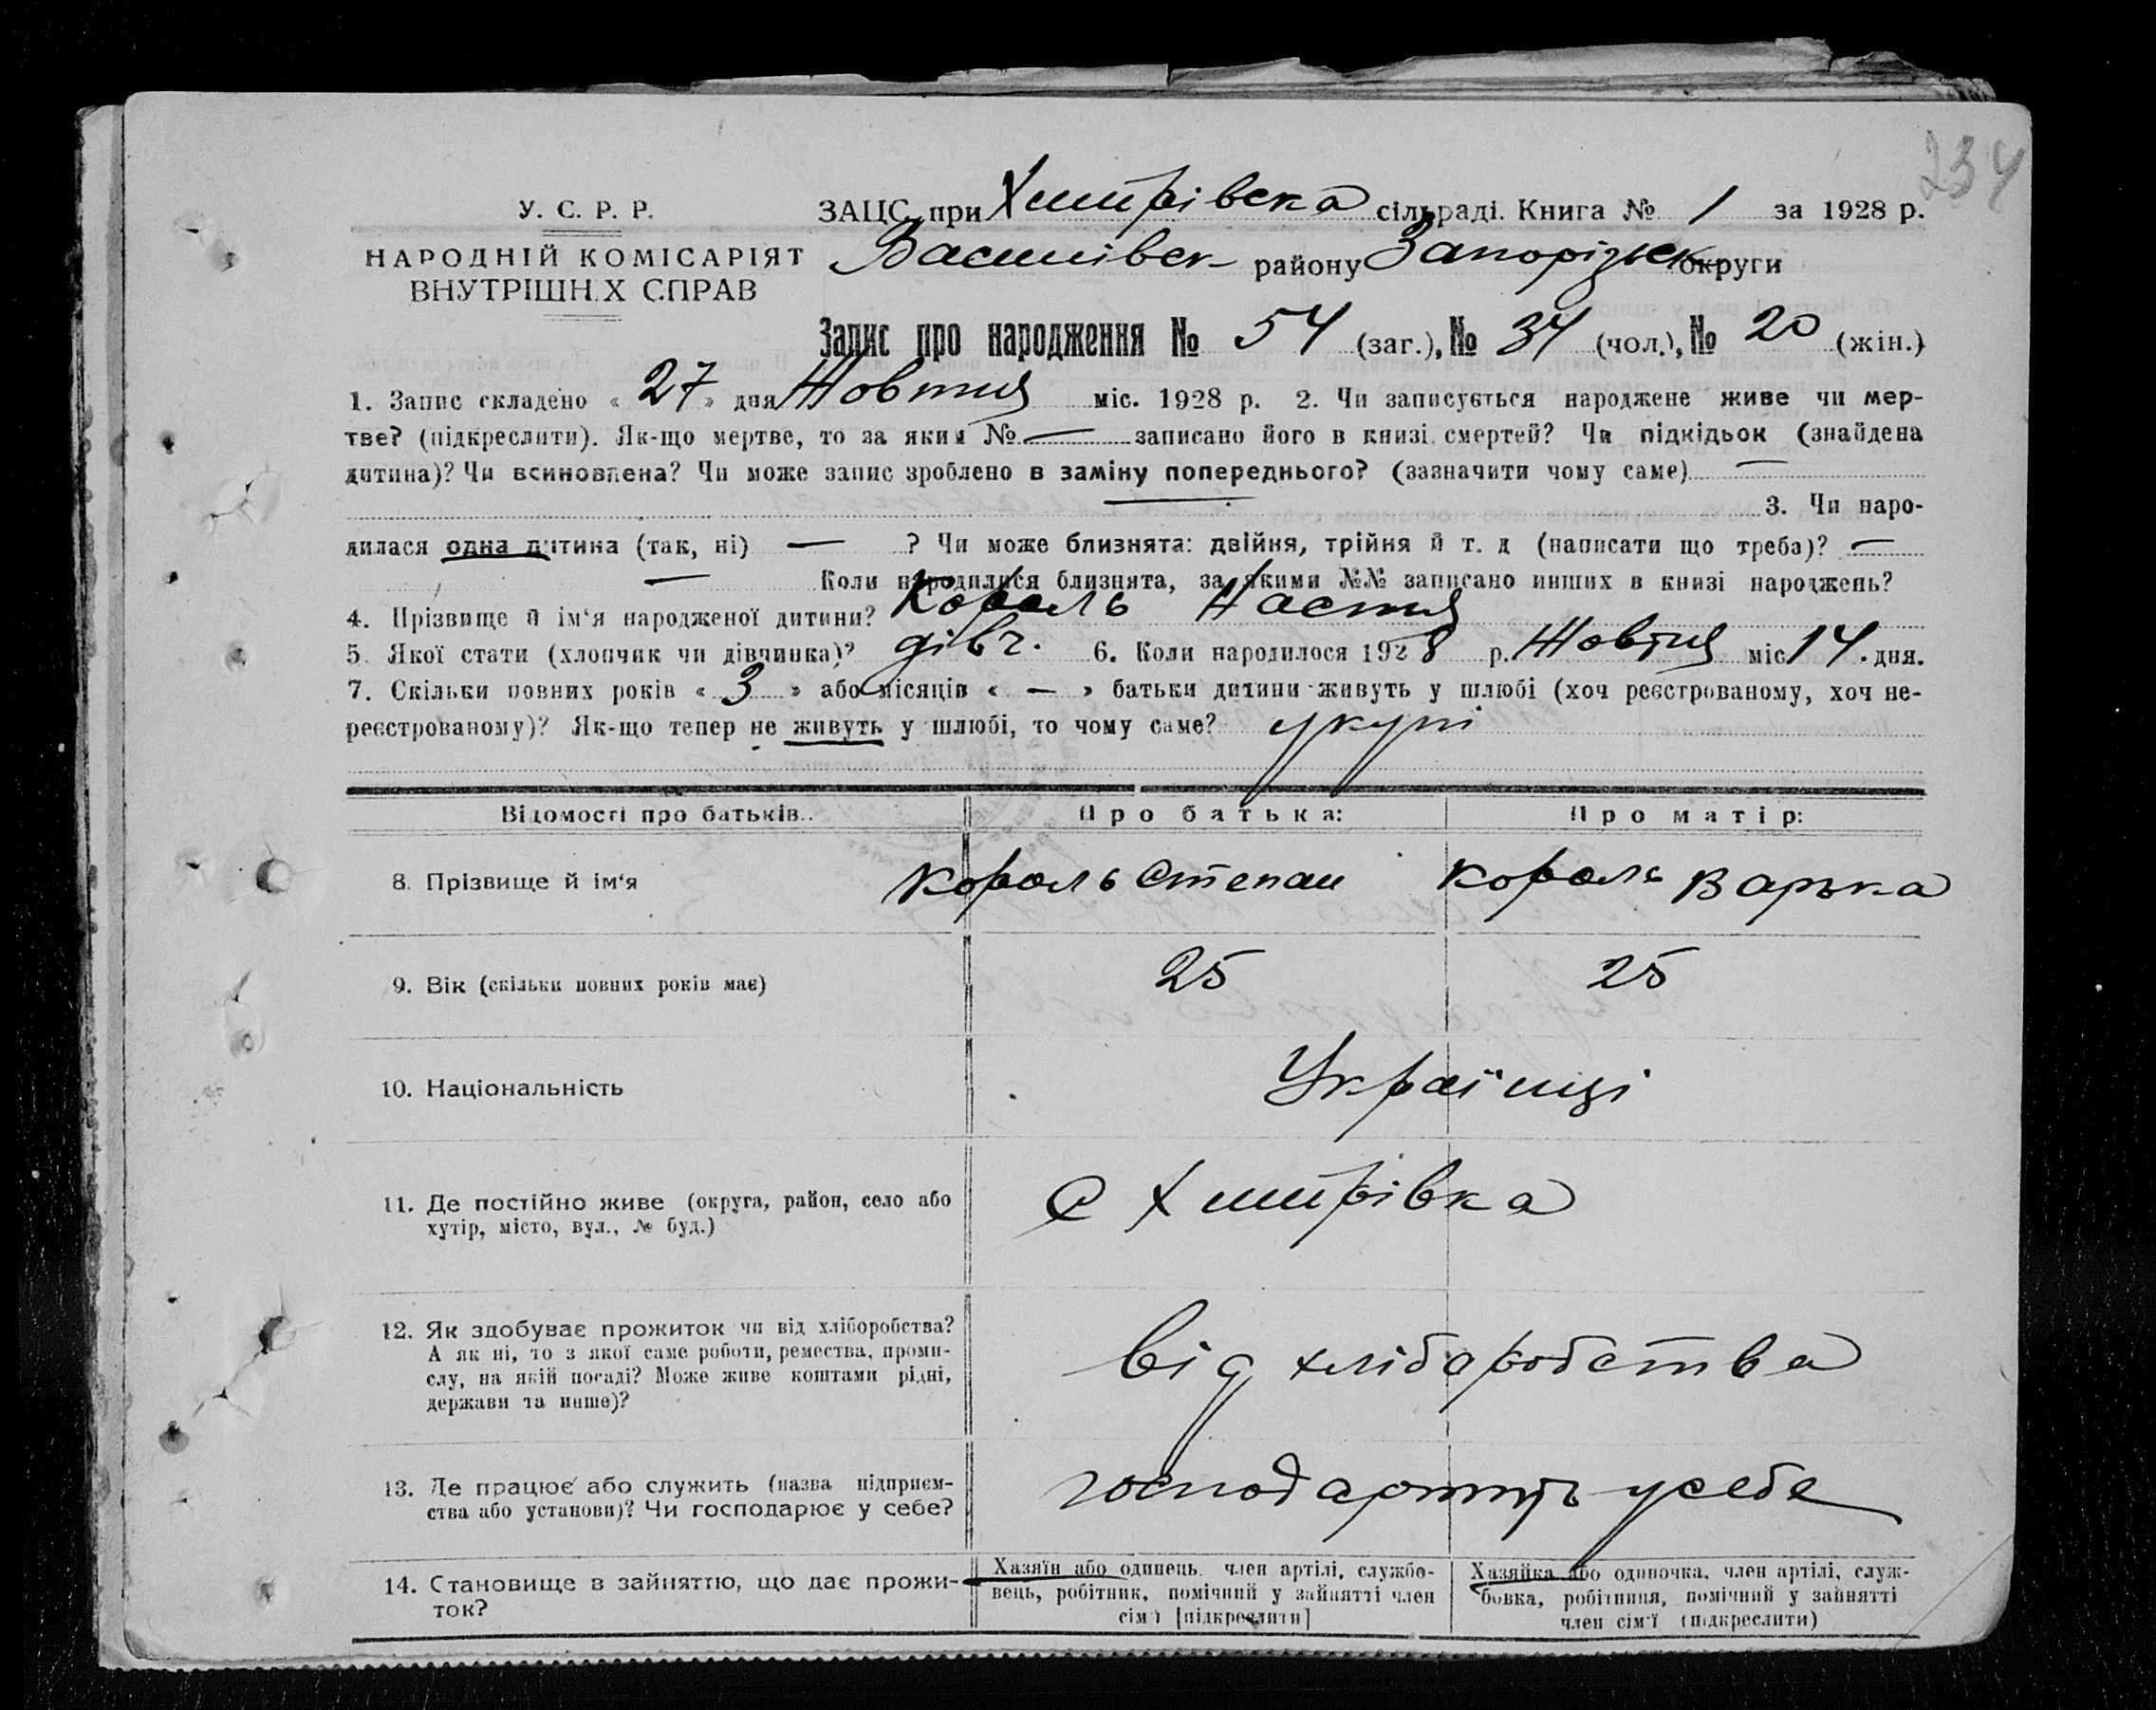 234
У. С. Р. Р.
НАРОДНІЙ КОМІСАРІЯТ
ВНУТРІШНІХ СПРАВ
ЗАЦС при Хитрівська сільраді. Книга № 1 за 1928 р.
Василівськ району Запорізьк округи
Запис про народження № 54 (заг.), № 34 (чол.), № 20 (жін.)
1. Запис складено « 27 » дня Жовтня міс. 1928 р. 2. Чи записується народжене живе чи мер-
тве? (підкреслити). Як-що мертве, то за яким № — записано його в книзі смертей? Чи підкідьок (знайдена
дитина)? Чи всиновлена? Чи може запис зроблено в заміну попереднього? (зазначити чому саме) —
— 3. Чи наро-
дилася одна дитина (так, ні) — ? Чи може близнята: двійня, трійня й т. д (написати що треба)? —
— Коли народилися близнята, за якими №№ записано инших в книзі народжень?
4. Прізвище й ім‘я народженої дитини? Король Настя
5. Якої стати (хлопчик чи дівчинка)? дівч. 6. Коли народилося 1928 р. Жовтня міс 14. дня.
7. Скільки повних років « 3 » або місяців « — » батьки дитини живуть у шлюбі (хоч реєстрованому, хоч не-
реєстрованому)? Як-що тепер не живуть у шлюбі, то чому саме? укупі
Відомості про батьків.
Про батька:
Про матір:
8. Прізвище й ім‘я
Король Степан
Король Варька
9. Вік (скільки повних років має)
25
25
10. Національність
Українці
11. Де постійно живе (округа, район, село або
хутір, місто, вул., № буд.)
С Хитрівка
12. Як здобуває прожиток чи від хліборобства?
А як ні, то з якої саме роботи, ремества, проми-
слу, на якій посаді? Може живе коштами рідні,
держави та инше)?
від хлібаробства
13. Де працює або служить (назва підприєм-
ства або установи)? Чи господарює у себе?
господарюють у себе
14. Становище в зайняттю, що дає прожи-
ток?
Хазяїн або одинець. член артілі, службо-
вець, робітник, помічний у зайнятті член
сім‘ї [підкреслити]
Хазяйка або одиночка. член артілі, служ-
бовка, робітниця, помічний у зайнятті
член сім‘ї (підкреслити)